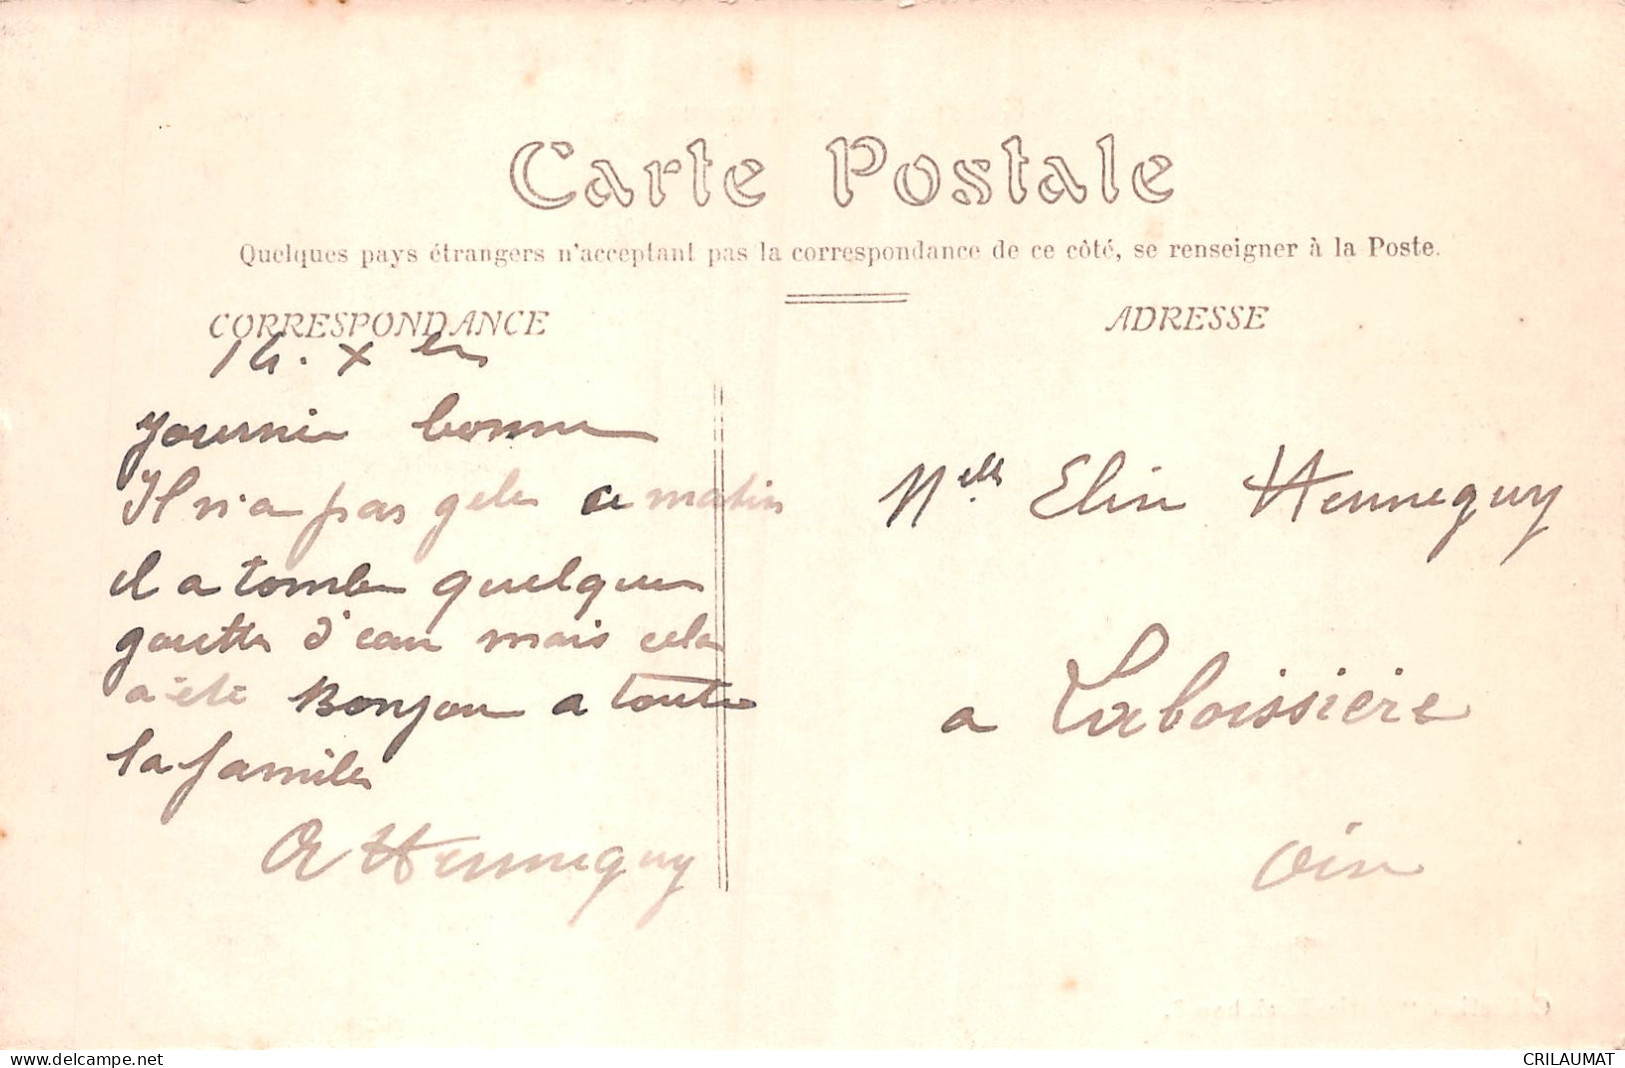 Carte Postale
Quelques pays étrangers n'acceptant pas la correspondance de ce côté, se renseigner à la Poste.
CORRESPONDANCE
14. Xbre
journée bonne
Il n'a pas gele ce matin
il a tombe quelques
gouttes d'eau mais cela
a été Bonjour a toute
la famille
A Hennequy
ADRESSE
Melle Elise Hennequy
a Laboissiere
Oise
delcampe.net
CRILAUMAT